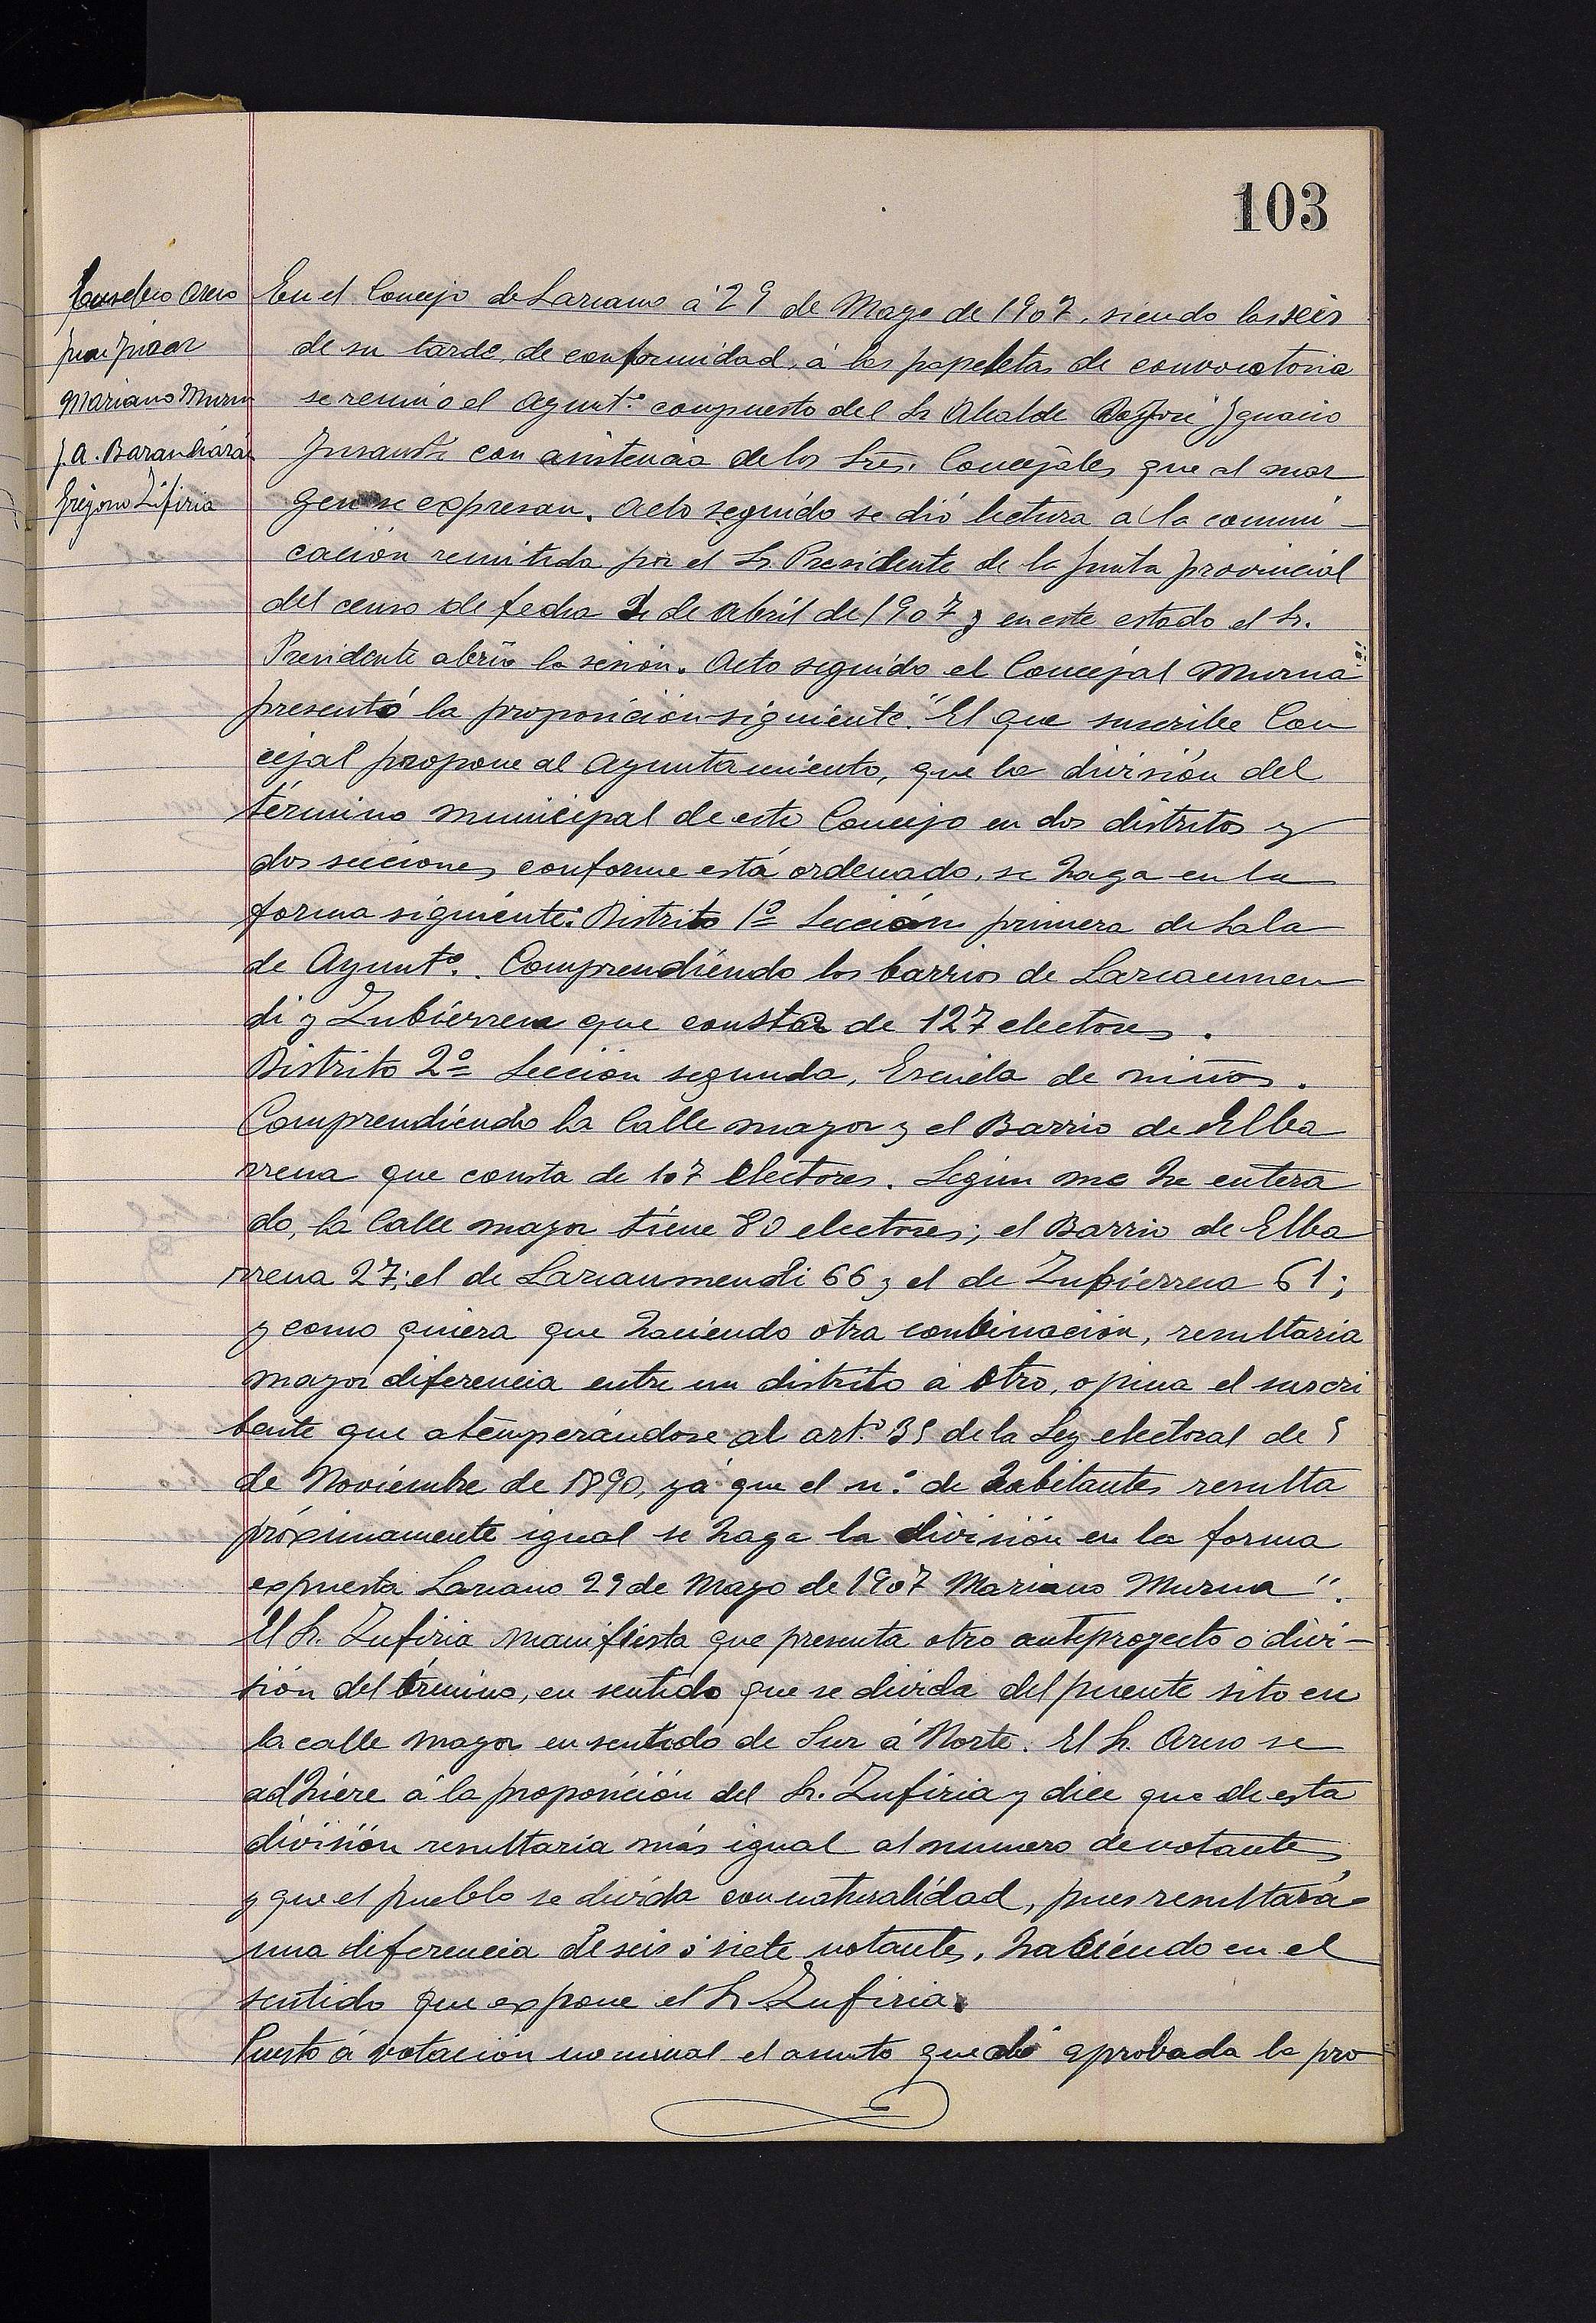 103
Eusebio Areso
Mariano Murua
J. A. Barandiarán
Gregorio Zufiria
En el Concejo de Lazcano á 29 de Mayo de 1907, siendo las seis
de su tarde, de conformidad, á las papeletas de convocatoria
se reunió el Ayunt.º compuesto del Sr Alcalde José Ignacio
con asistencia de los Sres. Concejales que al mar
gen se expresan. Acto seguido se dió lectura a la comuni-
cación remitida por el Sr. Presidente de la Junta provincial
del censo de fecha de Abril de 1907 y en este estado el Sr.
Presidente abrió la sesión. Acto seguido el Concejal Murua
presentó la proposición siguiente. "El que suscribe Con
cejal propone al Ayuntamiento, que la división del
término municipal de este Concejo en dos distritos y
dos secciones conforme está ordenado, se haga en la
forma siguiente: Distrito 1º Sección primera de Sala
de Ayuntº. Comprendiendo los barrios de Lazcaumen
di y Zubierrena que consta de 127 electores.
Distrito 2º Sección segunda, Escuela de niños.
Comprendiendo la Calle mayor y el Barrio de Elba
rrena que consta de 107 electores. Según me he entera
do, la Calle mayor tiene 80 electores; el Barrio de Elba
rrena 27; el de Lazcaumendi 66 y el de Zubierrena 61;
y como quiera que haciendo otra conbinación, resultaria
mayor diferencia entre un distrito á otro, opina el suscri
bente que atemperándose al art.º 35 de la Ley electoral de 5
de Noviembre de 1890, yá que el n.º de habitantes resulta
próximamente igual se haga la división en la forma
expuesta Lazcano 29 de Mayo de 1907 Mariano Murua".
El Sr. Zufiria manifiesta que presenta otro anteproyecto o divi-
sión del término, en sentido que se divida del puente sito en
la calle mayor en sentido de Sur á Norte. El Sr. Areso se
adhiere á la proposición del Sr. Zufiria y dice que de esta
división resultaria más igual al numero de votantes
y que el pueblo se divida con naturalidad, pues resultará
una diferencia de seis ó siete votantes, haciéndo en el
sentido que expone el Sr Zufiria.
Puesto á votación nominal el asunto quedó aprobada la pro